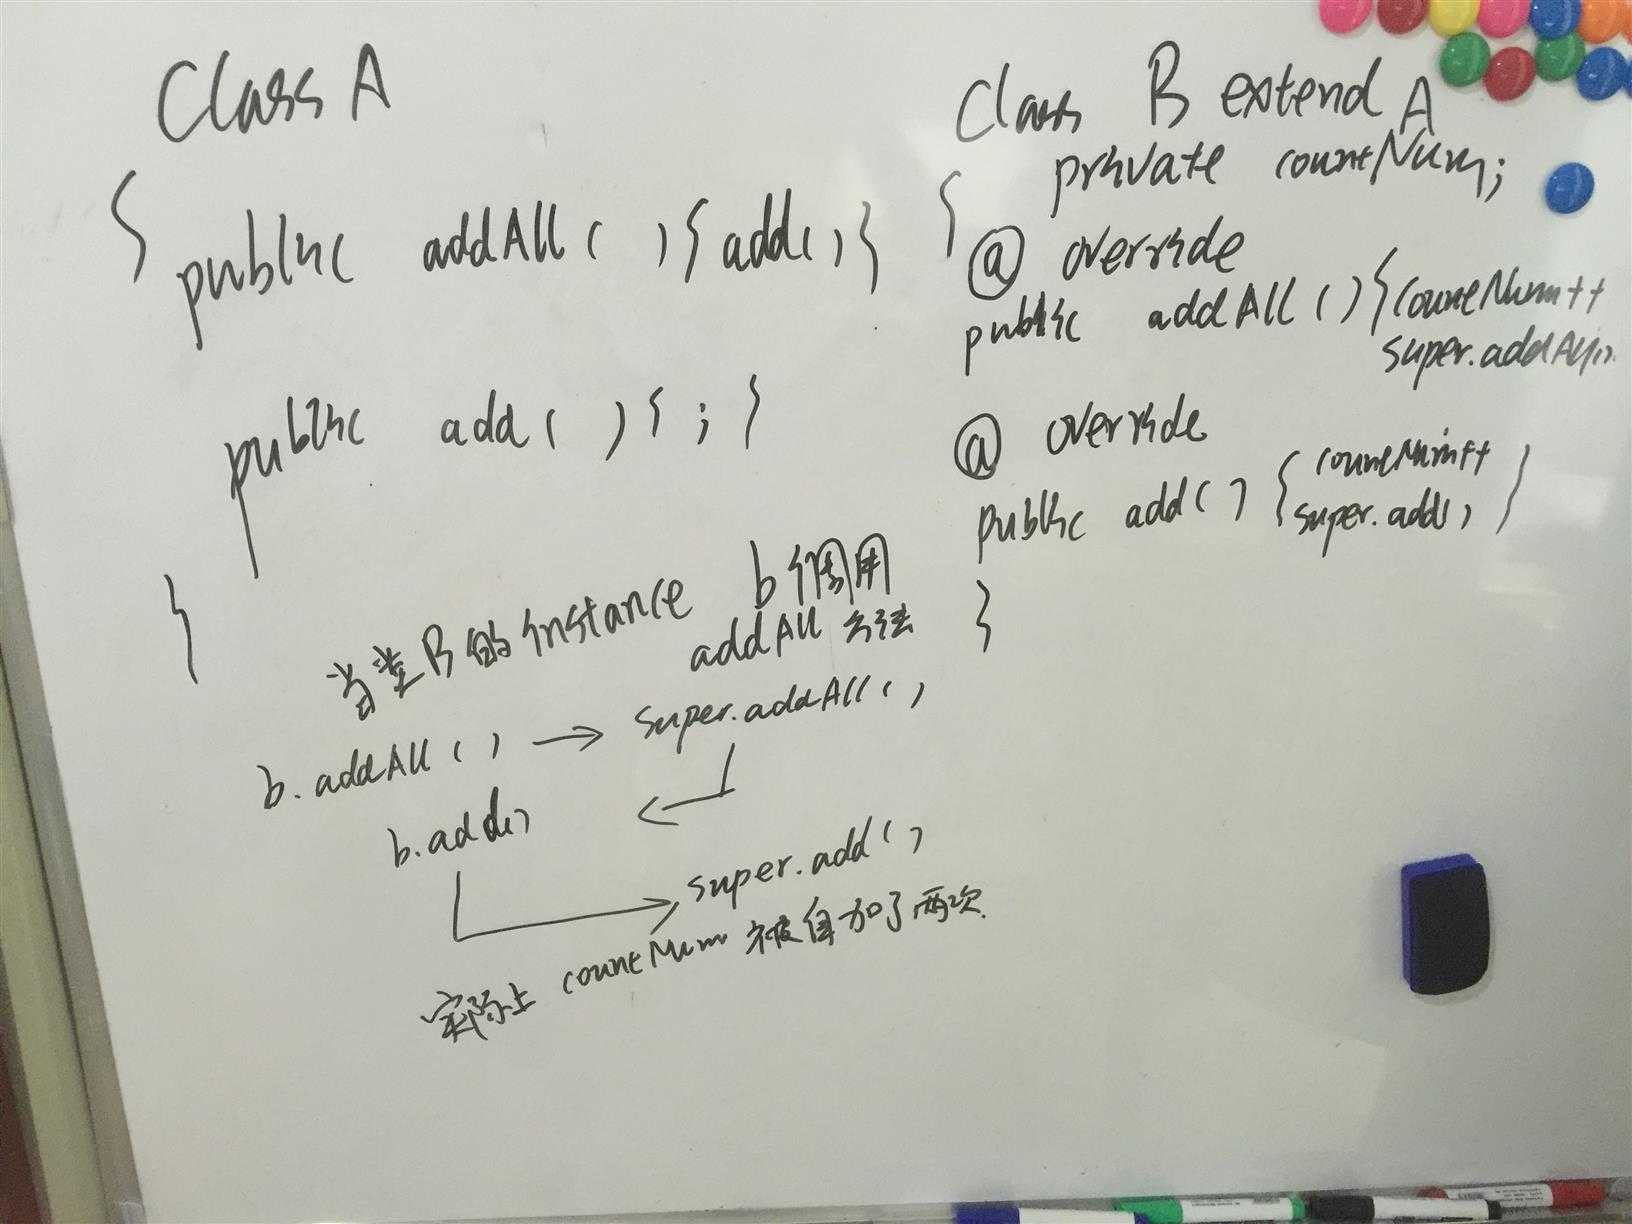 Class A
{
public addAll ( ) { add() }
public add ( ) { ; }
}
Class B extend A
{ private countNum;
@ override
public addAll ( ) { countNum++
super.addAll()
@ override
public add ( ) { countNum++
super.add() }
}
当类B的instance b 调用
addAll 方法
b.addAll ( ) → super.addAll ( )
b.add()
super.add ( )
实际上 countNum 被自加了两次.